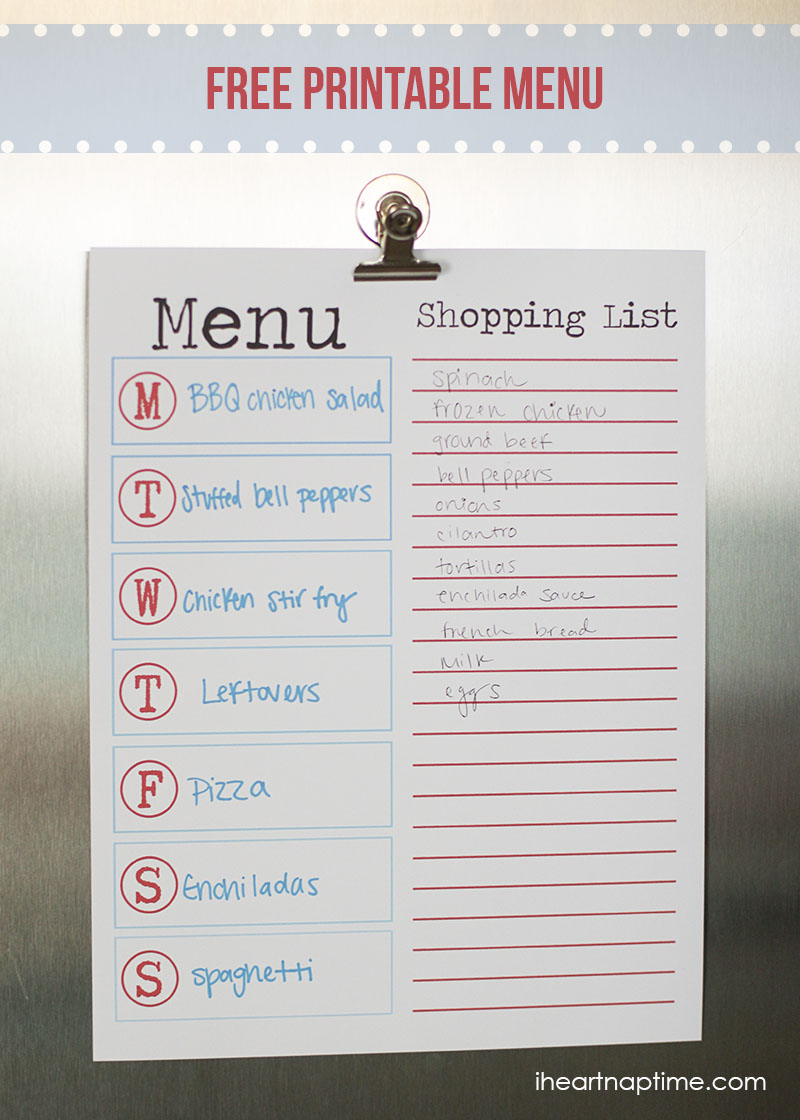 FREE PRINTABLE MENU
Menu
M BBQ chicken salad
T Stuffed bell peppers
W Chicken stir fry
T Leftovers
F Pizza
S Enchiladas
S spaghetti
Shopping List
spinach
frozen chicken
ground beef
bell peppers
onions
cilantro
tortillas
enchilada sauce
french bread
milk
eggs
iheartnaptime.com